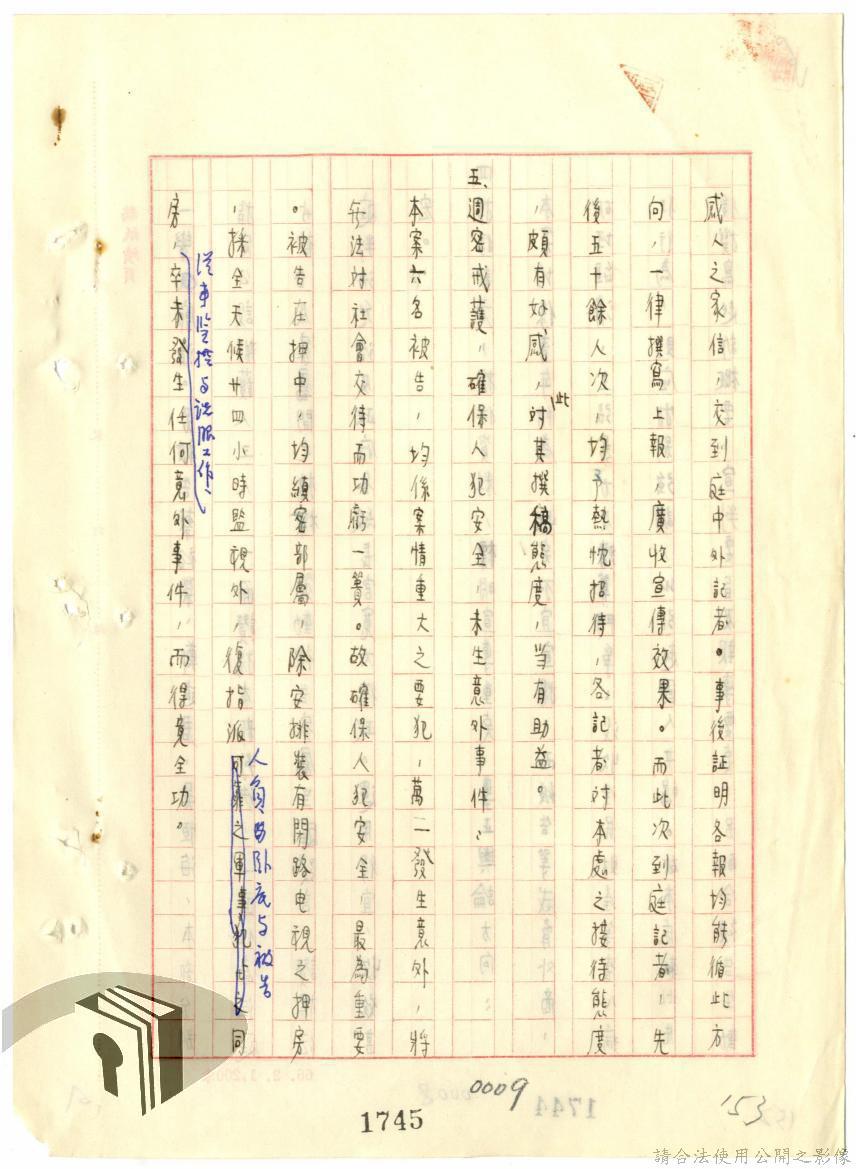 感人之家信，交到庭中外記者。事後証明各報均能循此方
向，一律撰寫上報，廣收宣傳效果。而此次到庭記者，先
後五十餘人次，均予熱忱招待，各記者対本處之接待態度
，頗有好感，対此其撰稿態度，当有助益。
五、週密戒護，確保人犯安全，未生意外事件：
本案六名被告，均係案情重大之要犯，萬一發生意外，將
無法対社會交待而功虧一簣。故確保人犯安全，最為重要
。被告在押中，均縝密部屬，除安排裝有閉路电視之押房
，採全天候廿四小時監視外，復指派可靠之軍事犯与之同
人員臥底与被告
房，卒未發生任何意外事件，而得竟全功。
從事監控与説服工作，
0009
1745
1744
153
66. 2. 1,200
請合法使用公開之影像